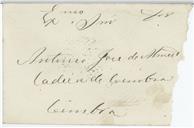 Exmo Snr
Antonio José de Almeida
Cadeia de Coimbra
Coimbra